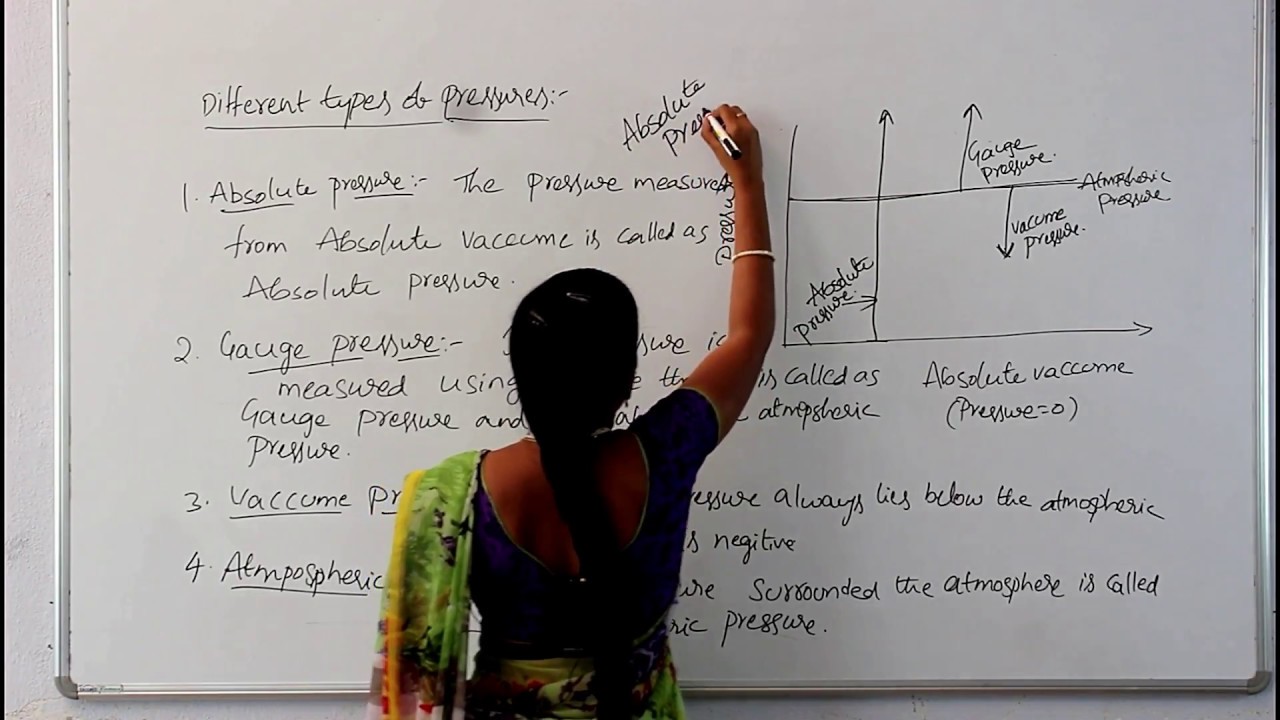 Different types of pressures:-
Absolute
press
1. Absolute pressure:- The pressure measured
from Absolute vaccume is called as
Absolute pressure.
2. Gauge pressure:-
measured using is called as
Gauge pressure and atmpsheric
pressure.
3. Vaccume pressure always lies below the atmospheric
is negitive
4. Atmpospheric surrounded the atmosphere is called
pressure.
pressure
Gauge
pressure.
Atmospheric
pressure
vaccume
pressure.
Absolute
pressure.
Absolute vaccume
(Pressure=0)